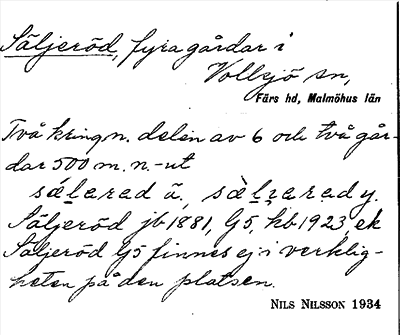 Säljeröd, fyra gårdar i
Vollsjö sn,
Färs hd, Malmöhus län
Två kring n. delen av 6 och två går-
dar 500 m. n.-ut
Säljeröd jb 1881, G5, kb 1923, ek
Säljeröd G5 finnes ej i verklig-
heten på den platsen.
NILS NILSSON 1934